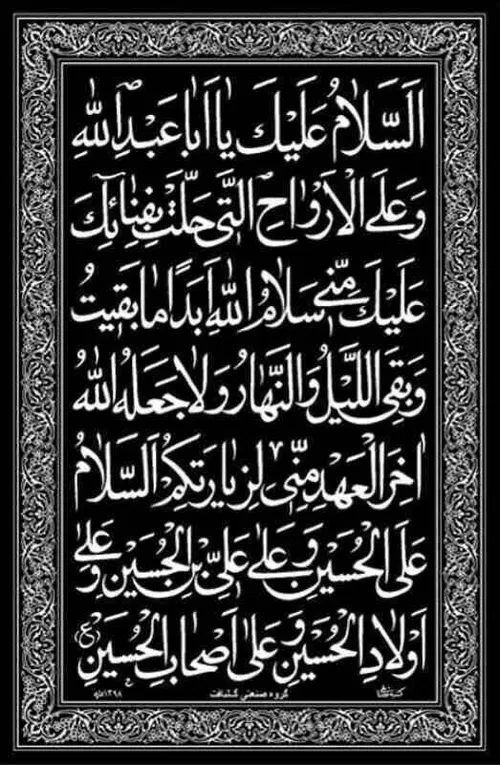 اَلسَّلامُ عَلَيْكَ يا اَبا عَبْدِ اللهِ
وَ عَلَى الْاَرْواحِ الَّتى حَلَّتْ بِفِنائِكَ
عَلَيْكَ مِنّى سَلامُ اللهِ اَبَدًا ما بَقيتُ
وَ بَقِىَ اللَّيْلُ وَ النَّهارُ وَ لا جَعَلَهُ اللهُ
اخِرَ الْعَهْدِ مِنّى لِزِيارَتِكُمْ اَلسَّلامُ
عَلَى الْحُسَيْنِ وَ عَلى عَلِىِّ بْنِ الْحُسَيْنِ وَ عَلى
اَوْلادِ الْحُسَيْنِ وَ عَلى اَصْحابِ الْحُسَيْنِ (ع)
گروه صنعتی گلبافت